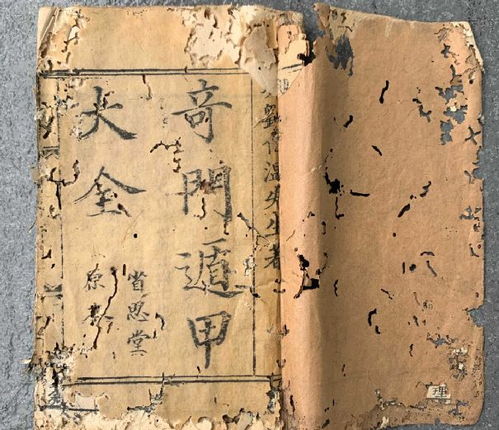 劉伯溫先生著
奇門遁甲
大全
省思堂
原
理